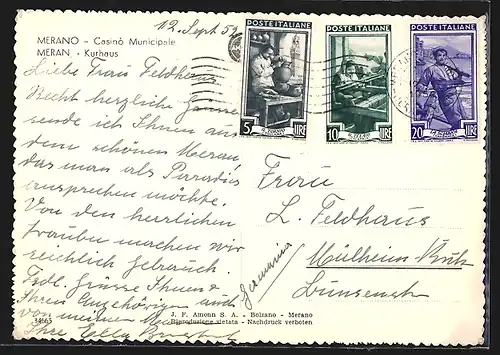 12. Sept. 5
MERANO - Casinò Municipale
MERAN - Kurhaus
Liebe Frau Feldhaus
Recht herzliche Grüsse
sende ich Ihnen aus
dem schönen Meran,
das man als Paradies
ansprechen möchte.
Von den herrlichen
Trauben machen wir
reichlich Gebrauch.
Frdl. Grüsse Ihnen &
Ihren Angehörigen auch
von meinem
Ihre
POSTE ITALIANE
5 LIRE
POSTE ITALIANE
10 LIRE
POSTE ITALIANE
20 LIRE
Frau
L. Feldhaus
Mülheim Ruhr
Germania
J. F. Amonn S. A. - Bolzano - Merano
Riproduzione vietata - Nachdruck verboten